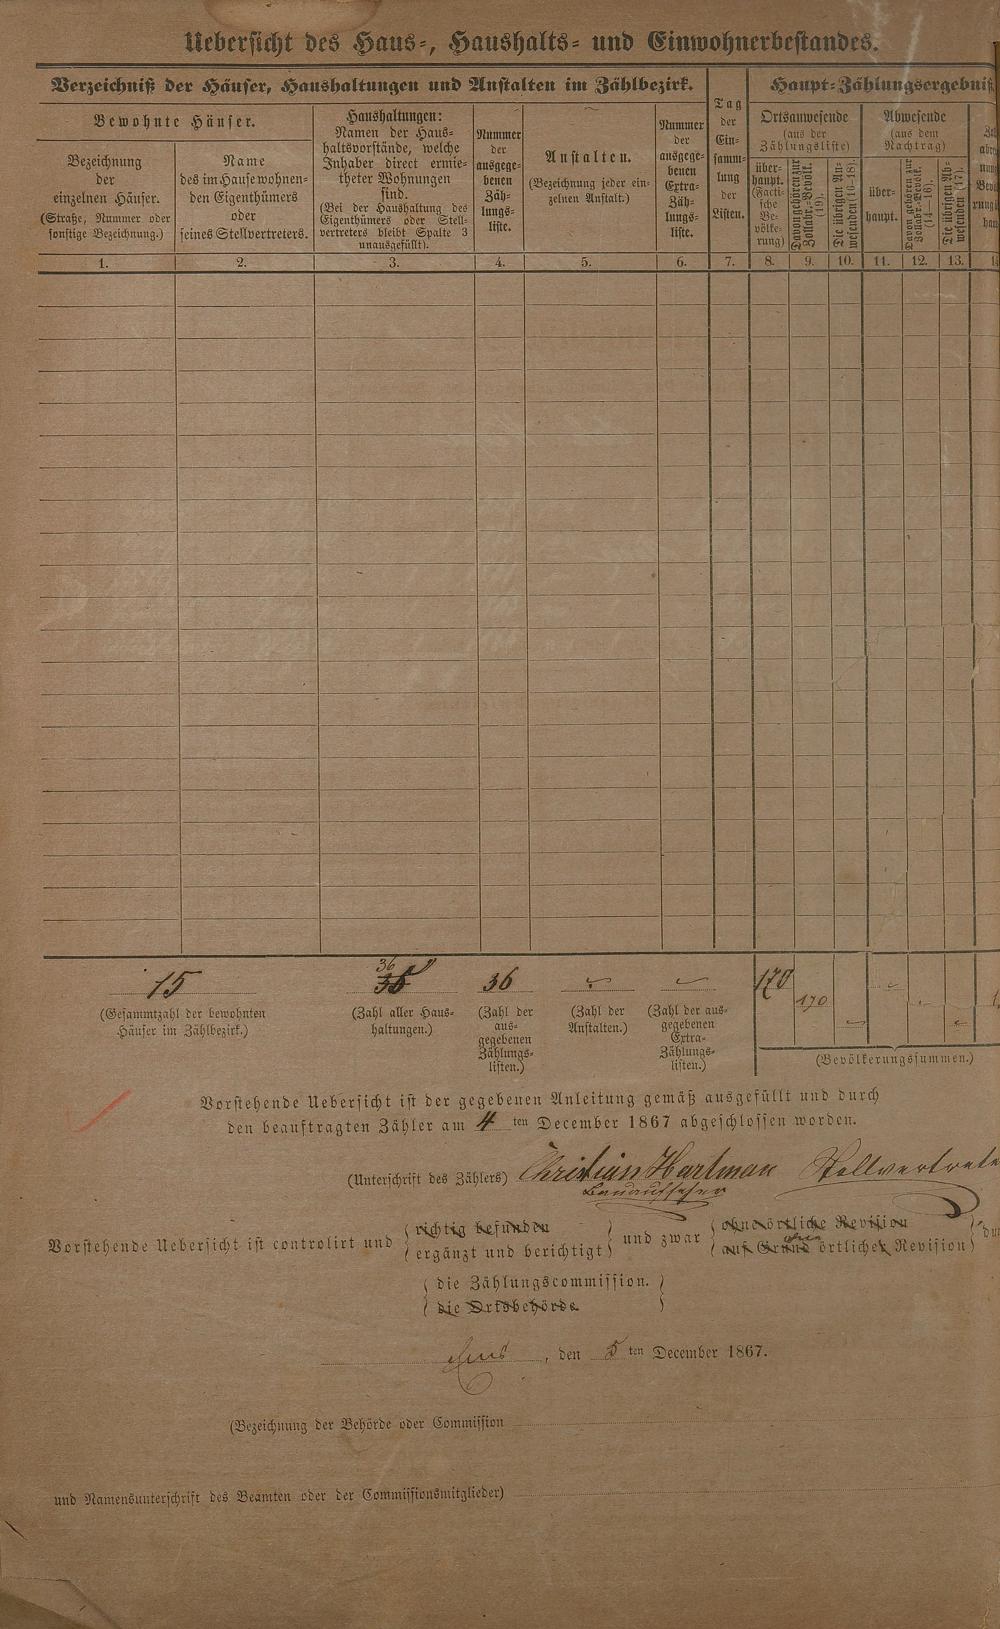 Uebersicht des Haus-, Haushalts- und Einwohnerbestandes.
Verzeichniß der Häuser, Haushaltungen und Anstalten im Zählbezirk.
Bewohnte Häuser.
Bezeichnung
der
einzelnen Häuser.
(Straße, Nummer oder
sonstige Bezeichnung.)
Name
des im Hause wohnen-
den Eigenthümers
oder
seines Stellvertreters.
Haushaltungen:
Namen der Haus-
haltsvorstände, welche
Inhaber direct ermie-
theter Wohnungen
sind.
(Bei der Haushaltung des
Eigenthümers oder Stell-
vertreters bleibt Spalte 3
unausgefüllt).
Nummer
der
ausgege-
benen
Zäh-
lungs-
liste.
Anstalten.
(Bezeichnung jeder ein-
zelnen Anstalt.)
Nummer
der
ausgege-
benen
Extra-
Zäh-
lungs-
liste.
Tag
der
Ein-
samm-
lung
der
Listen.
Haupt-Zählungsergebniß
Ortsanwesende
(aus der
Zählungsliste)
über-
haupt.
(Facti-
sche
Be-
völke-
rung)
Davon gehören zur
Zollabr.-Bevölk.
(19).
Die übrigen An-
wesenden (16-18).
Abwesende
(aus dem
Nachtrag)
über-
haupt.
Davon gehören zur
Zollabr.-Bevölk.
(14-16).
Die übrigen Ab-
wesenden (17).
1. 2. 3. 4. 5. 6. 7. 8. 9. 10. 11. 12. 13.
15 36 36 170 170
(Gesammtzahl der bewohnten
Häuser im Zählbezirk.)
(Zahl aller Haus-
haltungen.)
(Zahl der
aus-
gegebenen
Zählungs-
listen.)
(Zahl der
Anstalten.)
(Zahl der aus-
gegebenen
Extra-
Zählungs-
listen.)
(Bevölkerungssummen.)
Vorstehende Uebersicht ist der gegebenen Anleitung gemäß ausgefüllt und durch
den beauftragten Zähler am 4 ten December 1867 abgeschlossen worden.
(Unterschrift des Zählers) Christian Hartman Stellvertrete
Bauaufseher
Vorstehende Uebersicht ist controlirt und { richtig befunden
ergänzt und berichtigt } und zwar { ohne örtliche Revision
auf Grund ohne örtlicher Revision }
{ die Zählungscommission. }
{ die Ortsbehörde. }
Ems, den 5 ten December 1867.
(Bezeichnung der Behörde oder Commission
und Namensunterschrift des Beamten oder der Commissionsmitglieder)